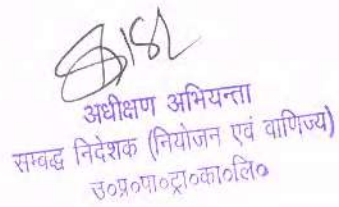 अधीक्षण अभियन्ता
सम्वद्ध निदेशक (नियोजन एवं वाणिज्य)
उ०प्र०पा०ट्रा०का०लि०